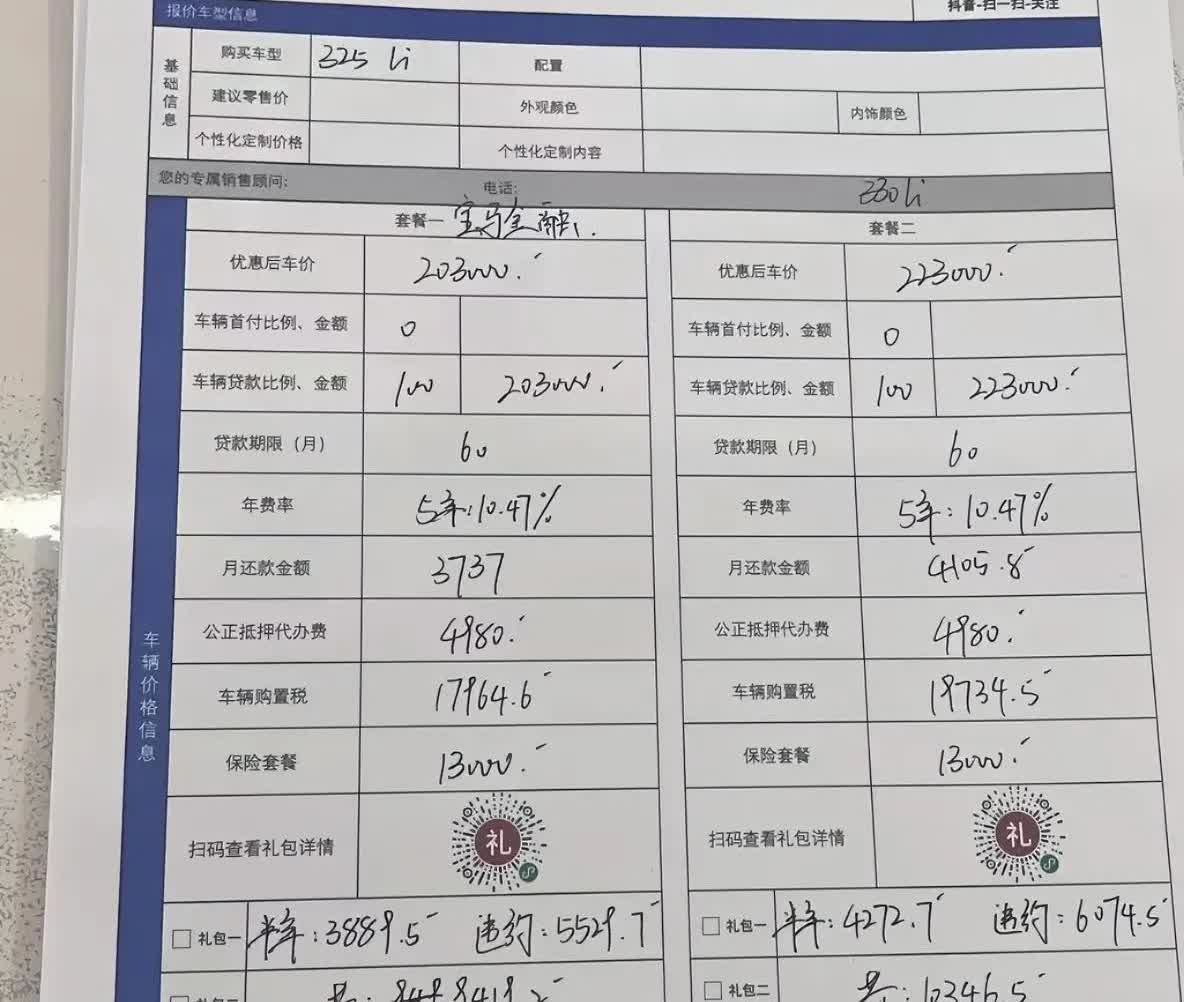 抖音-扫一扫-关注
报价车型信息
基础信息
购买车型 325 li 配置
建议零售价 外观颜色 内饰颜色
个性化定制价格 个性化定制内容
您的专属销售顾问: 电话: 330li
车辆价格信息
套餐一 宝马金融 套餐二
优惠后车价 203000. 优惠后车价 223000.
车辆首付比例、金额 0 车辆首付比例、金额 0
车辆贷款比例、金额 100 203000. 车辆贷款比例、金额 100 223000.
贷款期限（月） 60 贷款期限（月） 60
年费率 5年:10.47% 年费率 5年:10.47%
月还款金额 3737 月还款金额 4105.8
公正抵押代办费 4980. 公正抵押代办费 4980.
车辆购置税 17964.6 车辆购置税 19734.5
保险套餐 13000. 保险套餐 13000.
扫码查看礼包详情 礼 扫码查看礼包详情 礼
礼包一 半年:3889.5 违约:5529.7 礼包一 半年:4272.7 违约:6074.5
礼包二 礼包二 共:10346.5